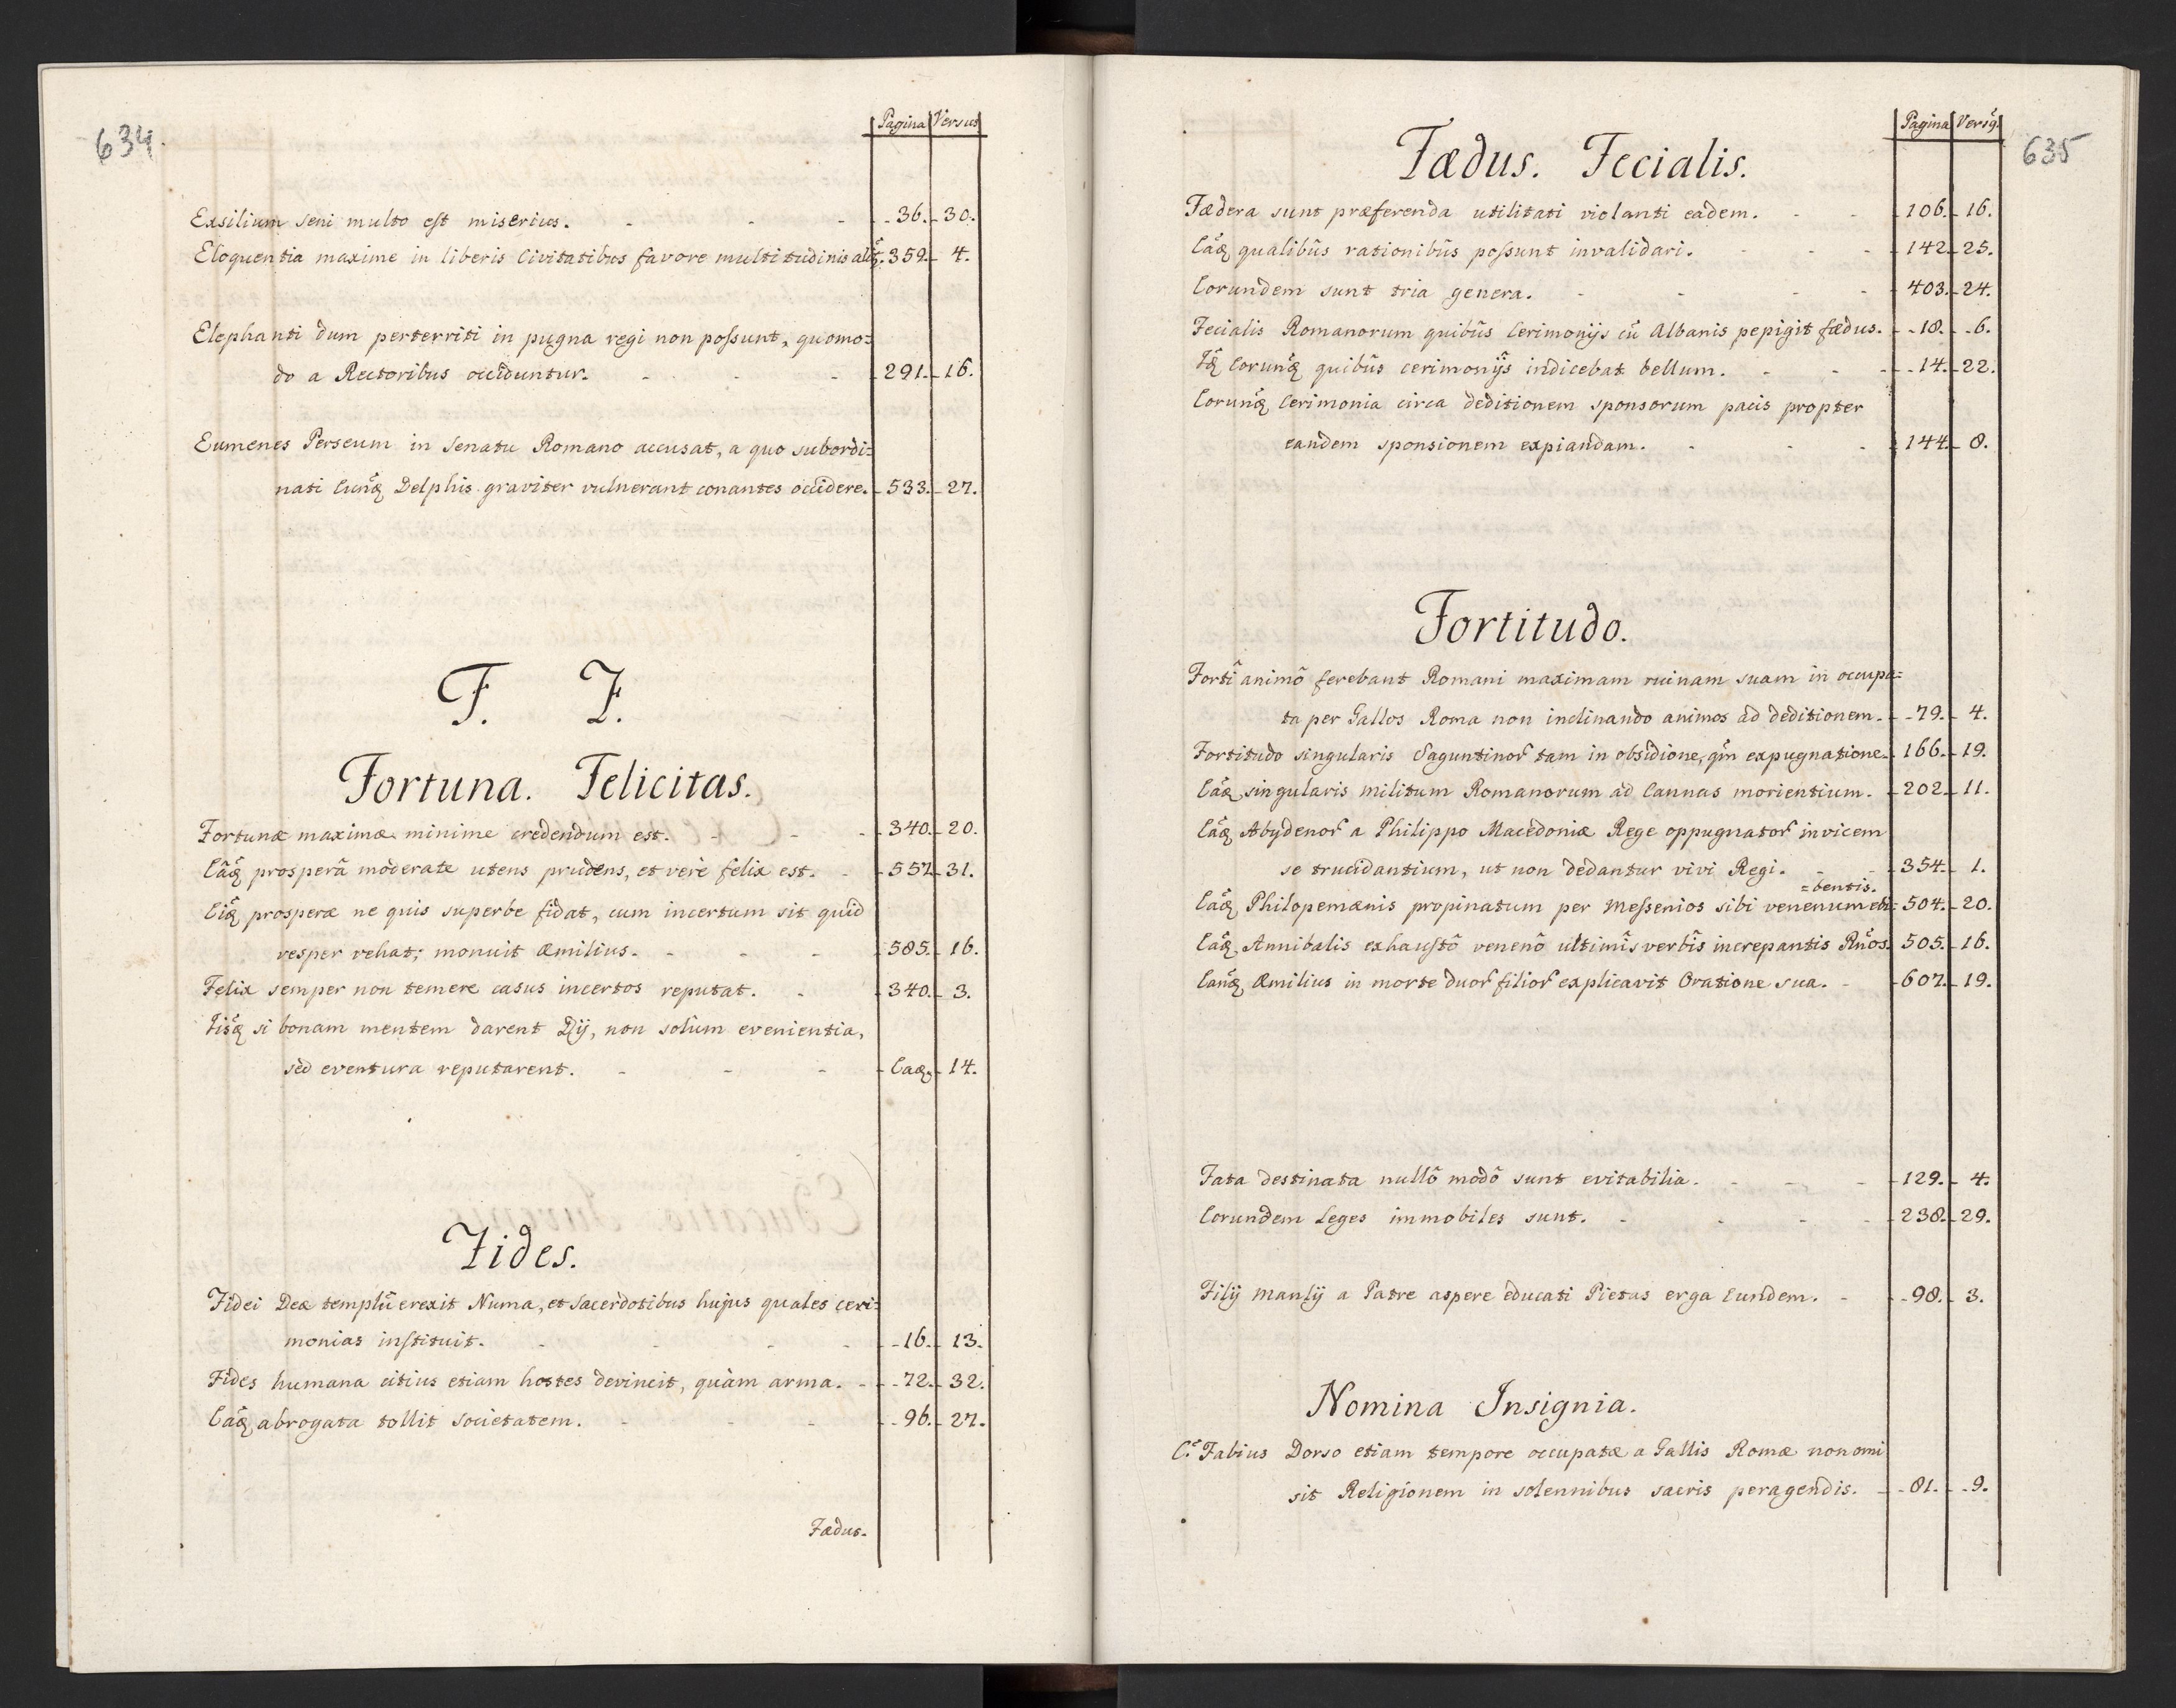 634.
Pagina Versus
Exsilium seni multo est miserius. - - - 36. 30.
Eloquentia maxime in liberis Civitatibus favore multitudinis 352. 4.
Elephanti dum perterriti in pugna regi non possunt, quomo=
do a Rectoribus occiduntur. - - - 291. 16.
Eumenes Perseum in Senatu Romano accusat, a quo subordi=
nati Eunq Delphis graviter vulnerant conantes occidere. 533. 27.
F. F.
Fortuna. Felicitas.
Fortunæ maximæ minime credendum est. - - - 340. 20.
Eâq prosperâ moderate utens prudens, et verè felix est. - 557. 31.
Ejq prosperæ ne quis superbe fidat, cum incertum sit quid
vesper vehat; monuit Æmilius. - - - 585. 16.
Felix semper non temere casus incertos reputat. - 340. 3.
Iisq si bonam mentem darent Dij, non solùm evenientia,
sed eventura reputarent. - - - Eaq 14.
Fides.
Fidei Deæ templũ erexit Numa, et Sacerdotibus hujus quales ceri=
monias instituit. - - - - 16. 13.
Fides humana citius etiam hostes devincit, quàm arma. - 72. 32.
Eaq abrogata tollit societatem. - - - 96. 27.
Fædus.
Pagina Versq.
635
Fædus. Fecialis.
Fædera sunt præferenda utilitati violanti eadem. - - 106. 16.
Eaq qualibûs rationibûs possunt invalidari. - - - 142. 25.
Eorundem sunt tria genera. - - - - 403. 24.
Fecialis Romanorum quibûs Cerimonijs cũ Albanis pepigit fædus. 18. 6.
Iq Eorunq quibûs cerimonijs indicebat bellum. - - - 14. 22.
Eorunq Cerimonia circa deditionem sponsorum pacis propter
eandem sponsionem expiandam. - - - 144. 8.
Fortitudo.
Fortî animô ferebant Romani maximam ruinam suam in occupa=
ta per Gallos Roma non inclinando animos ad deditionem. 79. 4.
Fortitudo singularis Saguntinor tam in obsidione, qm expugnatione. 166. 19.
Eaq singularis militum Romanorum ad Cannas morientium. 202. 11.
Eaq Abydenor a Philippo Macedoniæ Rege oppugnator invicem
se trucidantium, ut non dedantur vivi Regi. - - 354. 1.
=bentis.
Eaq Philopemænis propinatum per Messenios sibi venenum ebi= 504. 20.
Eaq Annibalis exhaustô venenô ultimîs verbîs increpantis Rnos. 505. 16.
Eanq Æmilius in morte duor filior explicavit Oratione sua. - 607. 19.
Fata destinata nullô modô sunt evitabilia. - - - 129. 4.
Eorundem Leges immobiles sunt. - - - - 238. 29.
Filij Manlij a Patre aspere educati Pietas erga Eundem. - 98. 3.
Nomina Insignia.
C. Fabius Dorso etiam tempore occupatæ a Gallis Romæ non omi
sit Religionem in solennibus sacris peragendis. - 81. 9.